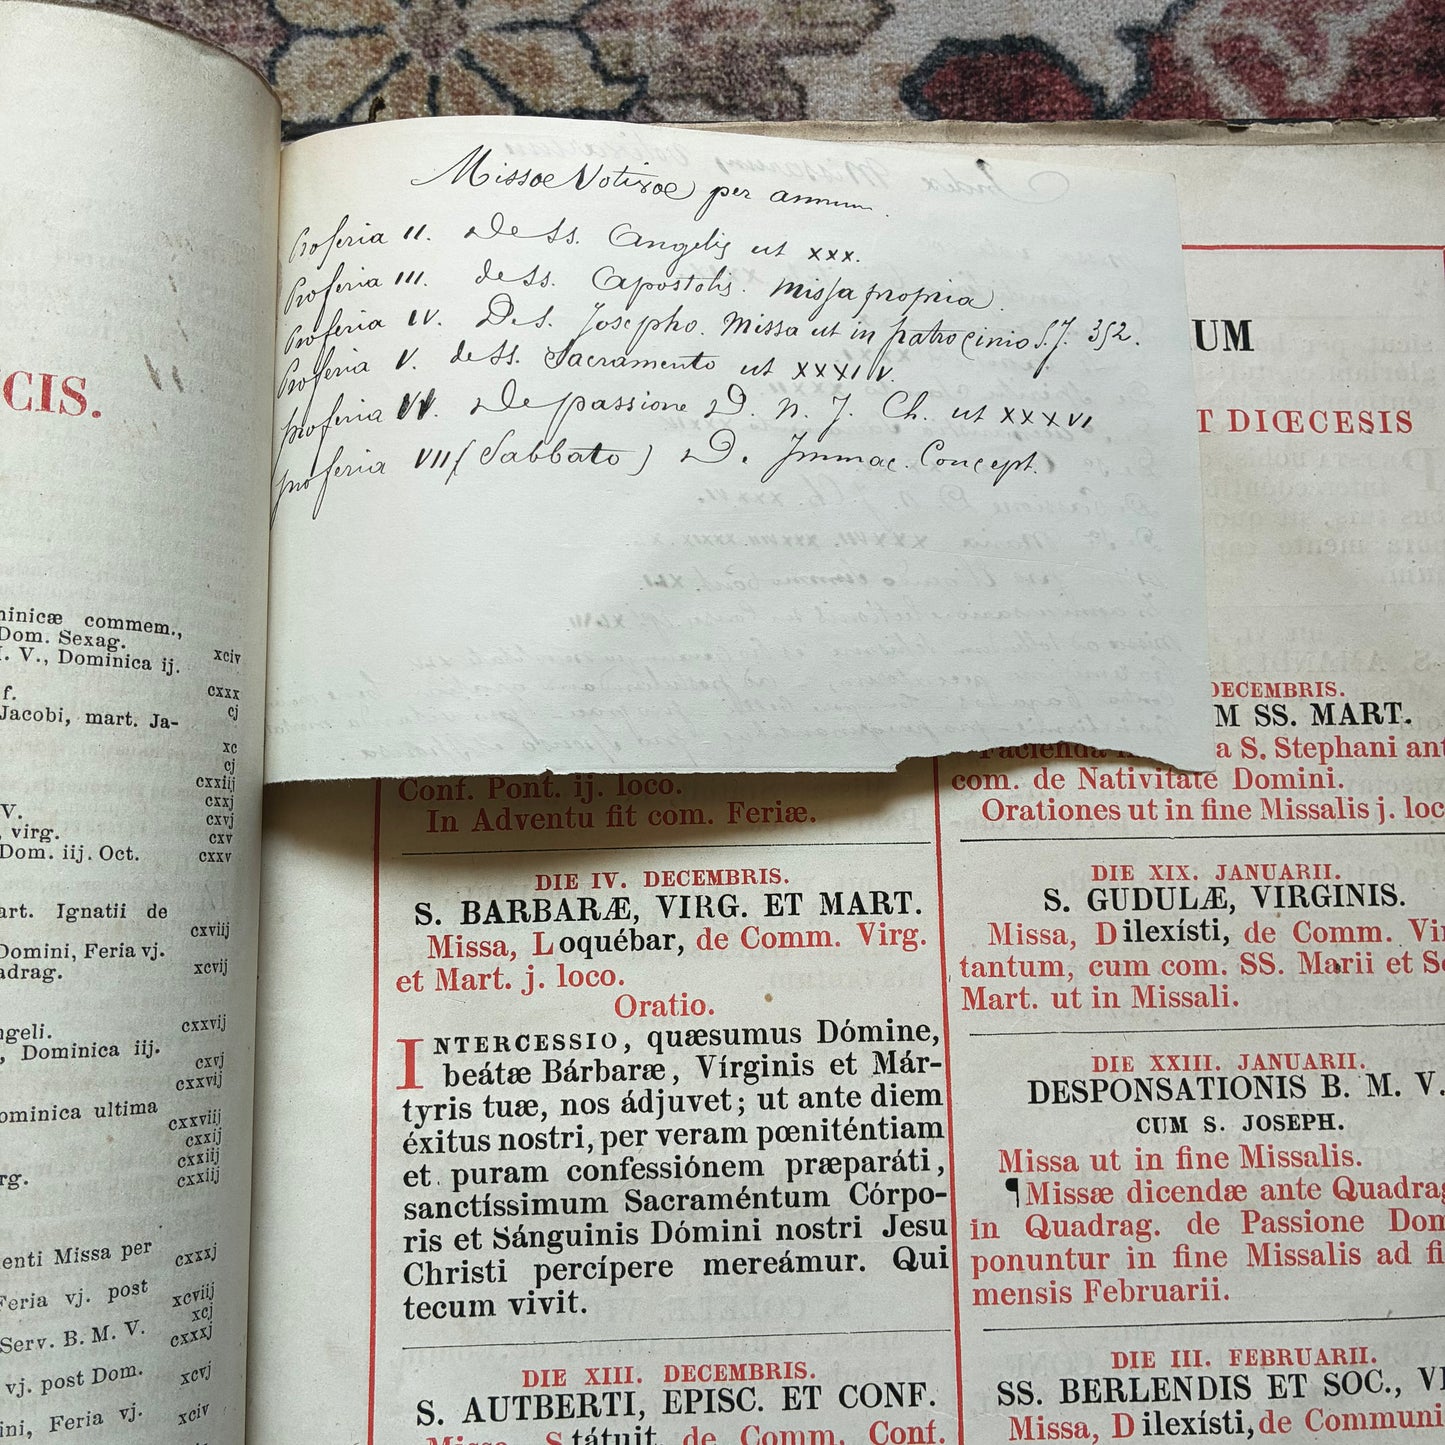 Missæ Votivæ per annum.
Pro feria II. De SS. Angelis ut xxx.
Pro feria III. de SS. Apostolis. Missa propria.
Pro feria IV. De S. Josepho. Missa ut in patrocinio S. J. 352.
Pro feria V. de SS. Sacramento ut XXXIV.
Pro feria VI. De passione D. N. J. Ch. ut XXXVI
Pro feria VII (Sabbato) D. Immac. Concept.
CIS.
commem.,
Dom. Sexag. xciv
V., Dominica ij.
f. cxxx
Jacobi, mart. Ja- cj
xc
cj
cxxiij
V. cxxj
virg. cxvj
Dom. iij. Oct. cxv
cxxv
art. Ignatii de
cxviij
Domini, Feria vj.
adrag. xcvij
ngeli. cxxvij
, Dominica iij.
cxvj
cxxvij
ominica ultima
cxxviij
cxxij
cxxiij
rg. cxxiij
enti Missa per
cxxxj
Feria vj. post
xcviij
xcj
Serv. B. M. V. cxxxj
vj. post Dom.
xcvj
ini, Feria vj.
xciv
Conf. Pont. ij. loco.
In Adventu fit com. Feriæ.
DIE IV. DECEMBRIS.
S. BARBARÆ, VIRG. ET MART.
Missa, Loquébar, de Comm. Virg.
et Mart. j. loco.
Oratio.
INTERCESSIO, quæsumus Dómine,
beátæ Bárbaræ, Vírginis et Már-
tyris tuæ, nos ádjuvet; ut ante diem
éxitus nostri, per veram pœniténtiam
et puram confessiónem præparáti,
sanctíssimum Sacraméntum Córpo-
ris et Sánguinis Dómini nostri Jesu
Christi percípere mereámur. Qui
tecum vivit.
DIE XIII. DECEMBRIS.
S. AUTBERTI, EPISC. ET CONF.
Missa, Státuit, de Comm. Conf.
UM
T DIŒCESIS
DECEMBRIS.
M SS. MART.
Facienda a S. Stephani ant
com. de Nativitate Domini.
Orationes ut in fine Missalis j. loc
DIE XIX. JANUARII.
S. GUDULÆ, VIRGINIS.
Missa, Dilexísti, de Comm. Vir
tantum, cum com. SS. Marii et So
Mart. ut in Missali.
DIE XXIII. JANUARII.
DESPONSATIONIS B. M. V.
CUM S. JOSEPH.
Missa ut in fine Missalis.
¶ Missæ dicendæ ante Quadrag
in Quadrag. de Passione Dom
ponuntur in fine Missalis ad fi
mensis Februarii.
DIE III. FEBRUARII.
SS. BERLENDIS ET SOC., VI
Missa, Dilexísti, de Communi